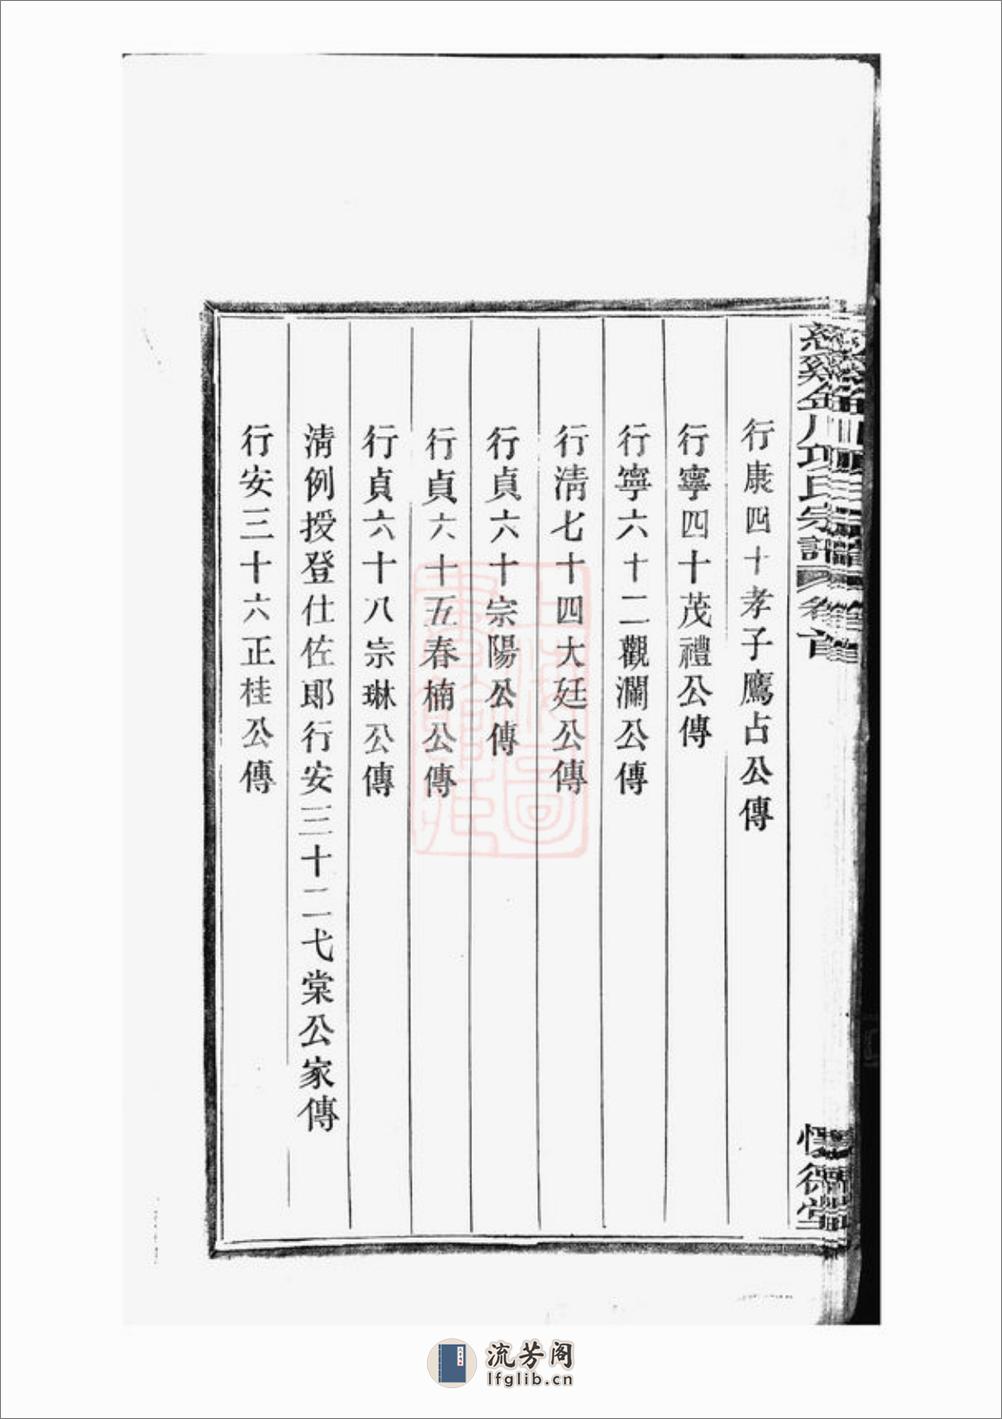 慈谿金川項氏宗譜 卷首
行康四十孝子鷹占公傳
行寧四十茂禮公傳
行寧六十二觀瀾公傳
行淸七十四大廷公傳
行貞六十宗陽公傳
行貞六十五春楠公傳
行貞六十八宗琳公傳
淸例授登仕佐郞行安三十二弋棠公家傳
行安三十六正桂公傳
德堂
流芳阁
lfglib.cn